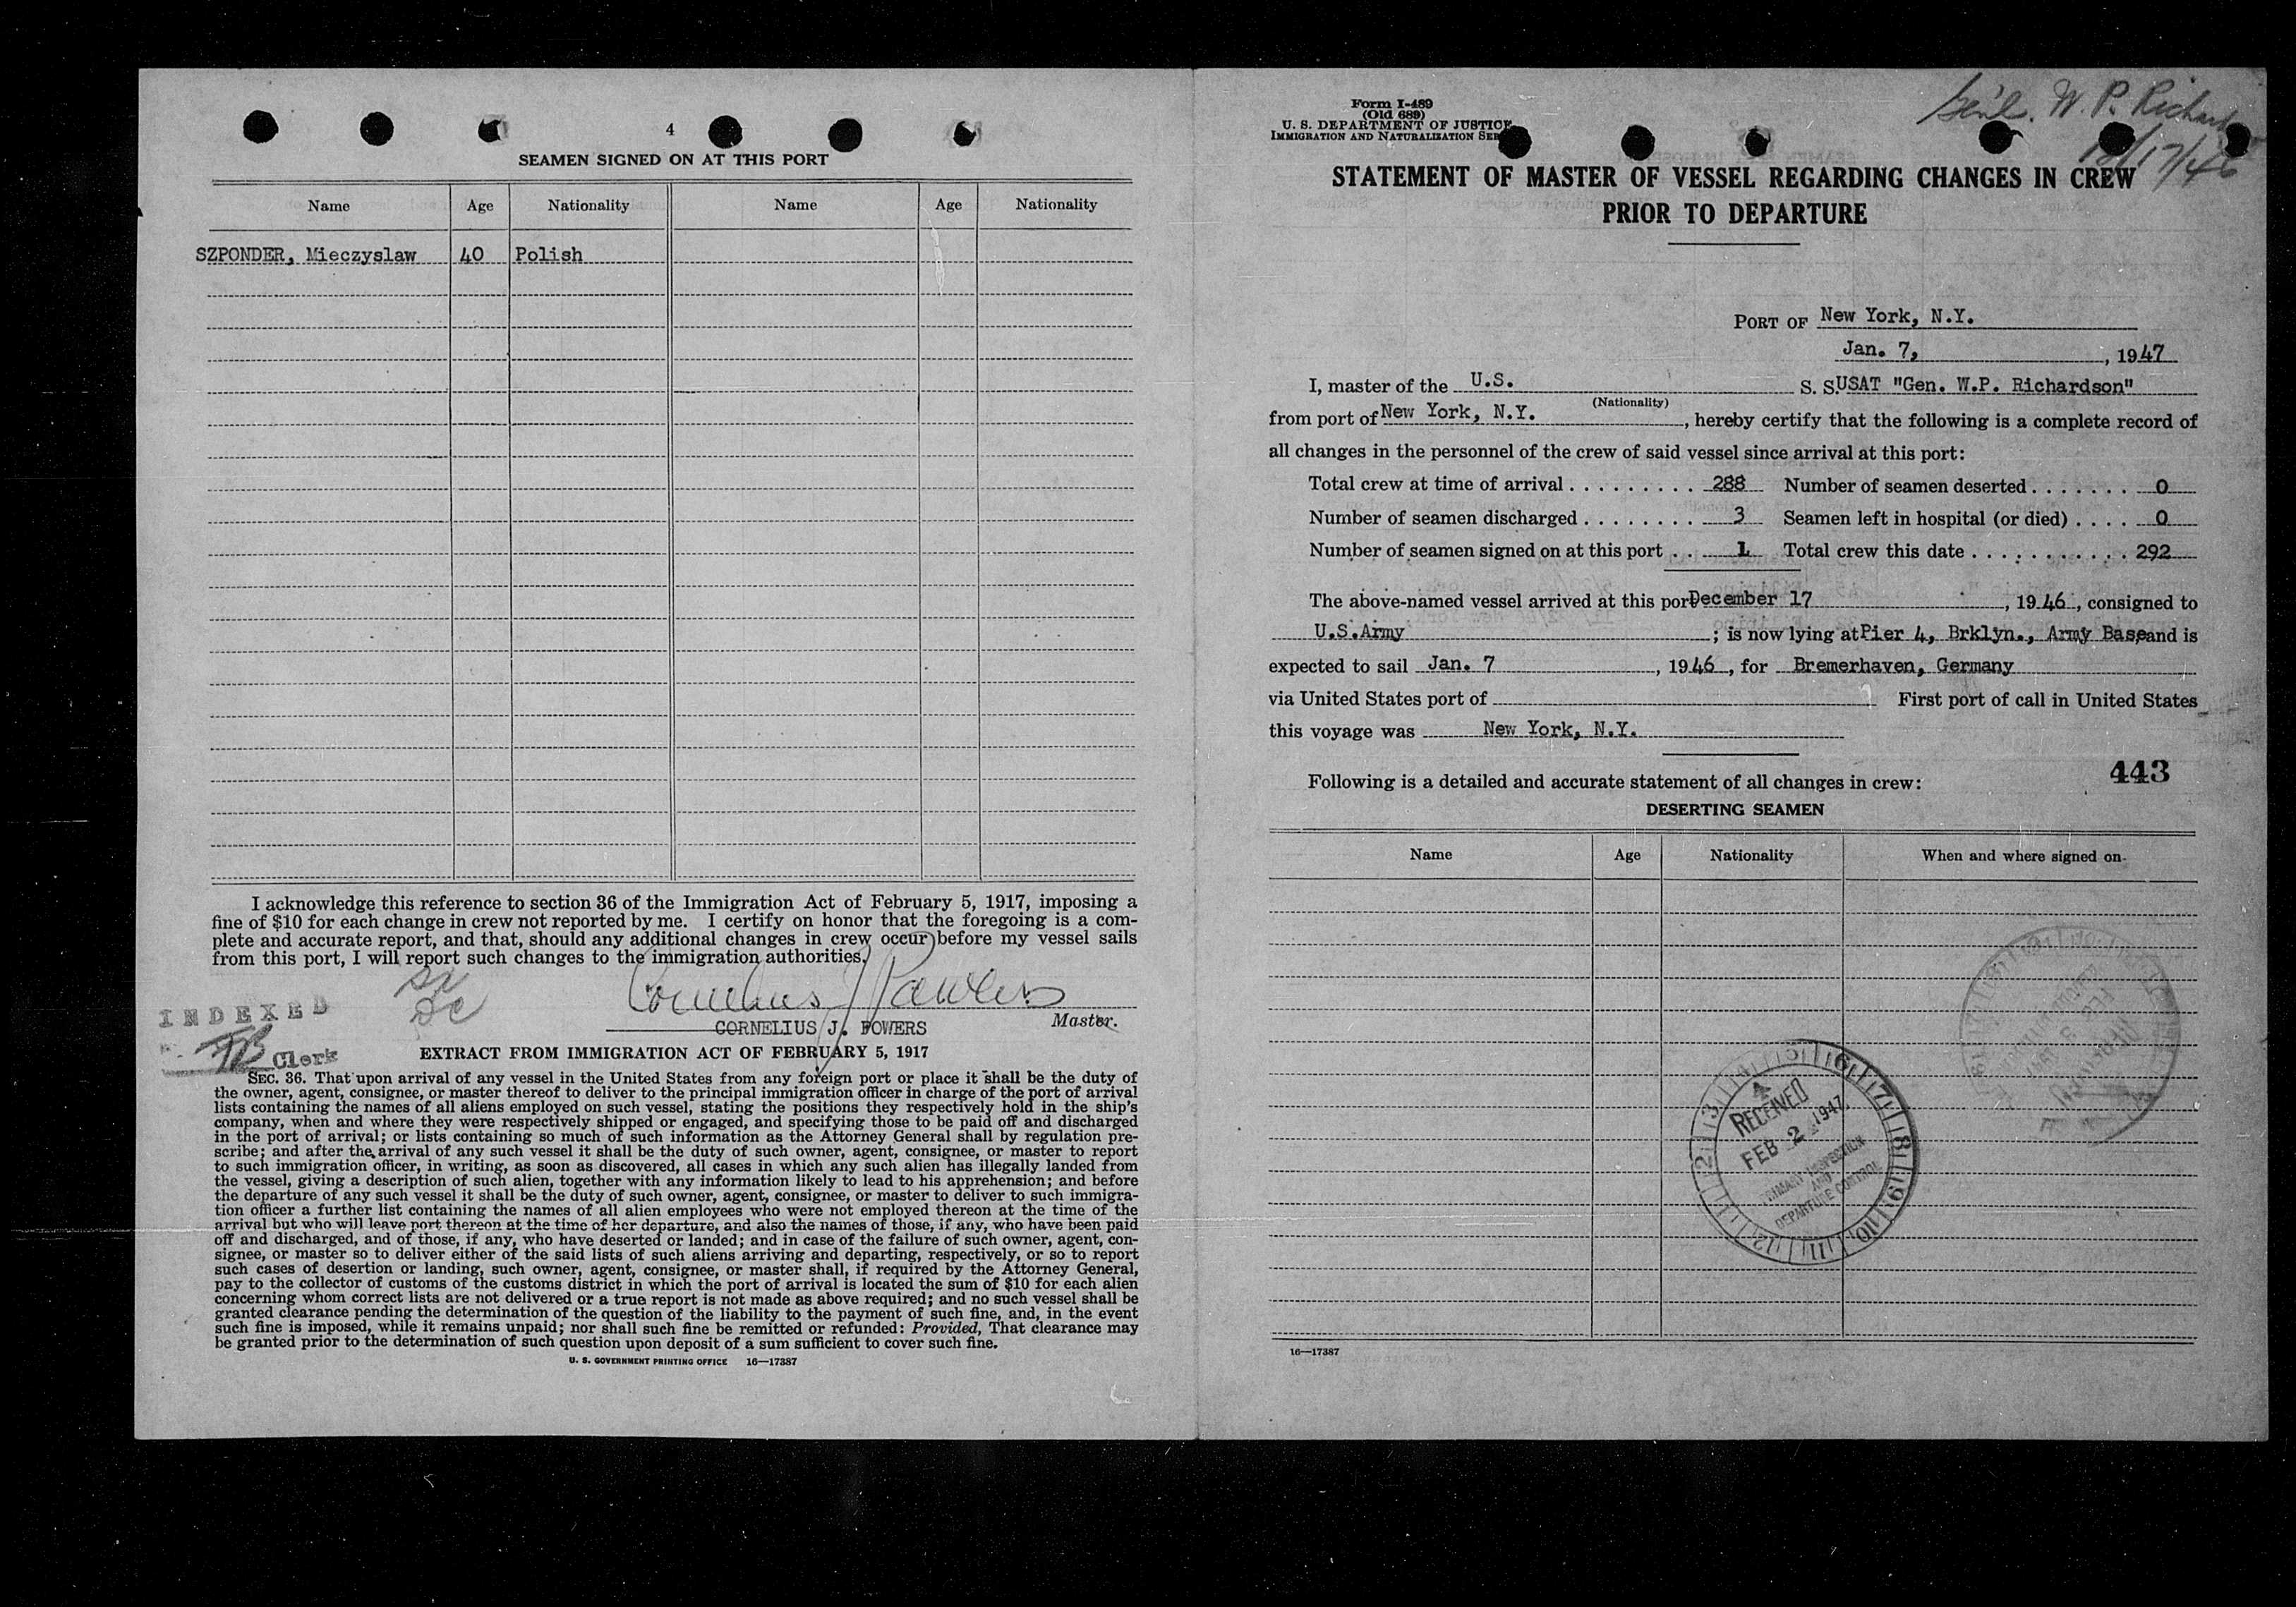 4
SEAMEN SIGNED ON AT THIS PORT
Name Age Nationality Name Age Nationality
SZPONDER, Mieczyslaw 40 Polish
I acknowledge this reference to section 36 of the Immigration Act of February 5, 1917, imposing a
fine of $10 for each change in crew not reported by me. I certify on honor that the foregoing is a com-
plete and accurate report, and that, should any additional changes in crew occur before my vessel sails
from this port, I will report such changes to the immigration authorities.
CORNELIUS J. POWERS Master.
INDEXED
Clerk
EXTRACT FROM IMMIGRATION ACT OF FEBRUARY 5, 1917
SEC. 36. That upon arrival of any vessel in the United States from any foreign port or place it shall be the duty of
the owner, agent, consignee, or master thereof to deliver to the principal immigration officer in charge of the port of arrival
lists containing the names of all aliens employed on such vessel, stating the positions they respectively hold in the ship's
company, when and where they were respectively shipped or engaged, and specifying those to be paid off and discharged
in the port of arrival; or lists containing so much of such information as the Attorney General shall by regulation pre-
scribe; and after the arrival of any such vessel it shall be the duty of such owner, agent, consignee, or master to report
to such immigration officer, in writing, as soon as discovered, all cases in which any such alien has illegally landed from
the vessel, giving a description of such alien, together with any information likely to lead to his apprehension; and before
the departure of any such vessel it shall be the duty of such owner, agent, consignee, or master to deliver to such immigra-
tion officer a further list containing the names of all alien employees who were not employed thereon at the time of the
arrival but who will leave port thereon at the time of her departure, and also the names of those, if any, who have been paid
off and discharged, and of those, if any, who have deserted or landed; and in case of the failure of such owner, agent, con-
signee, or master so to deliver either of the said lists of such aliens arriving and departing, respectively, or so to report
such cases of desertion or landing, such owner, agent, consignee, or master shall, if required by the Attorney General,
pay to the collector of customs of the customs district in which the port of arrival is located the sum of $10 for each alien
concerning whom correct lists are not delivered or a true report is not made as above required; and no such vessel shall be
granted clearance pending the determination of the question of the liability to the payment of such fine, and, in the event
such fine is imposed, while it remains unpaid; nor shall such fine be remitted or refunded: Provided, That clearance may
be granted prior to the determination of such question upon deposit of a sum sufficient to cover such fine.
U. S. GOVERNMENT PRINTING OFFICE 16—17387
Gen'l. W. P. Richard
12/17/46
Form I-489
(Old 689)
U. S. DEPARTMENT OF JUSTICE
IMMIGRATION AND NATURALIZATION SER
STATEMENT OF MASTER OF VESSEL REGARDING CHANGES IN CREW
PRIOR TO DEPARTURE
PORT OF New York, N.Y.
Jan. 7, , 1947
I, master of the U.S. S. S. USAT "Gen. W.P. Richardson"
(Nationality)
from port of New York, N.Y. , hereby certify that the following is a complete record of
all changes in the personnel of the crew of said vessel since arrival at this port:
Total crew at time of arrival . . . . . . . . . 288 Number of seamen deserted . . . . . . . 0
Number of seamen discharged . . . . . . . . 3 Seamen left in hospital (or died) . . . . 0
Number of seamen signed on at this port . . 1 Total crew this date . . . . . . . . . . . 292
The above-named vessel arrived at this port December 17 , 1946 , consigned to
U.S.Army ; is now lying at Pier 4, Brklyn., Army Base, and is
expected to sail Jan. 7 , 1946 , for Bremerhaven, Germany
via United States port of First port of call in United States
this voyage was New York, N.Y.
443
Following is a detailed and accurate statement of all changes in crew:
DESERTING SEAMEN
Name Age Nationality When and where signed on
RECEIVED
FEB 2 1947
PRIMARY INSPECTION
AND
DEPARTURE CONTROL
16—17387